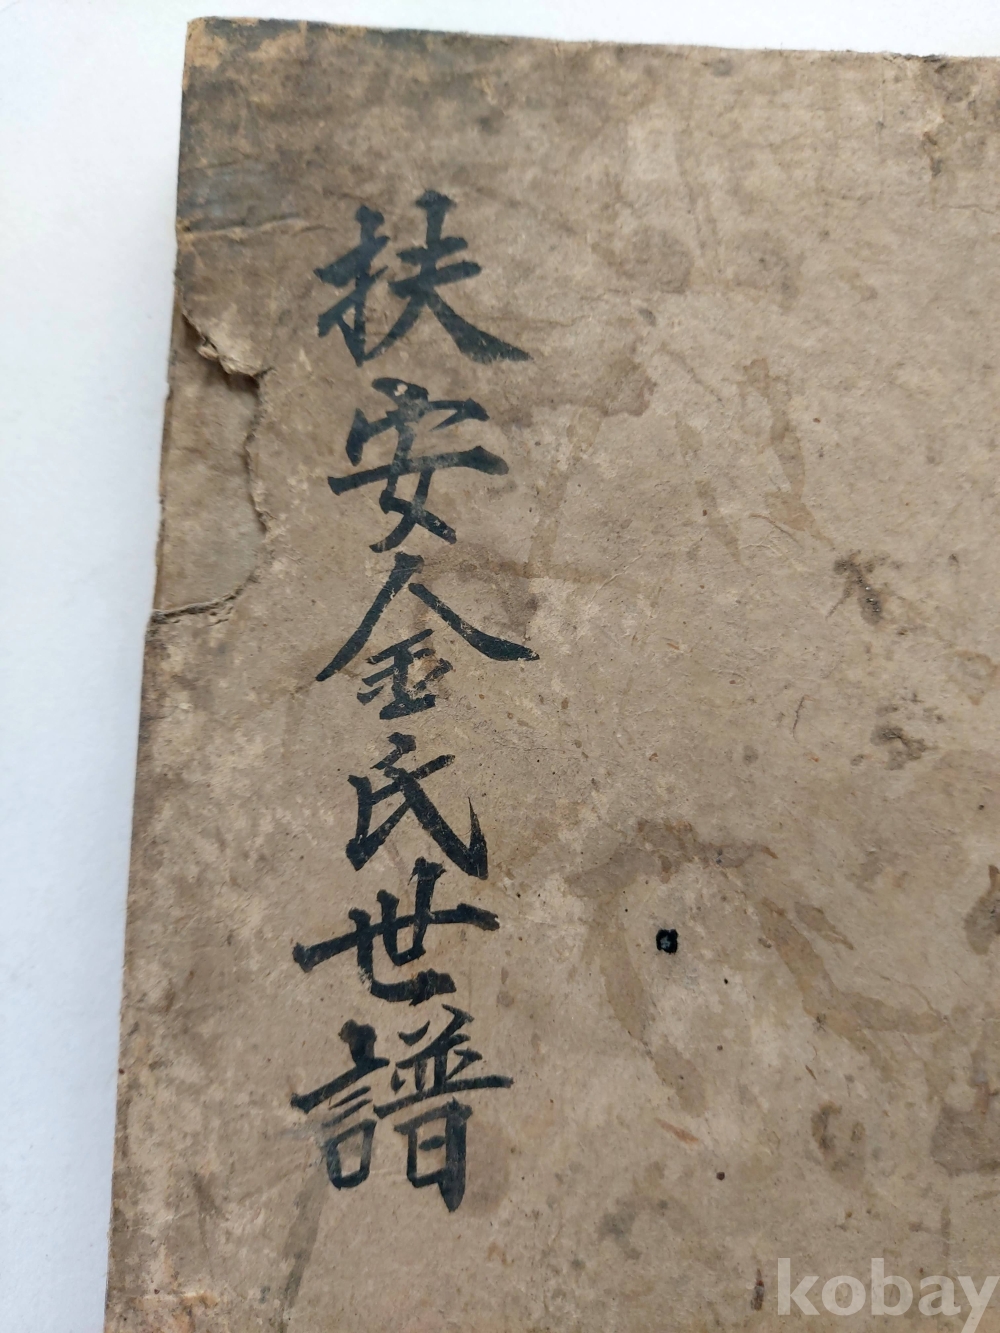 扶安金氏世譜
kobay